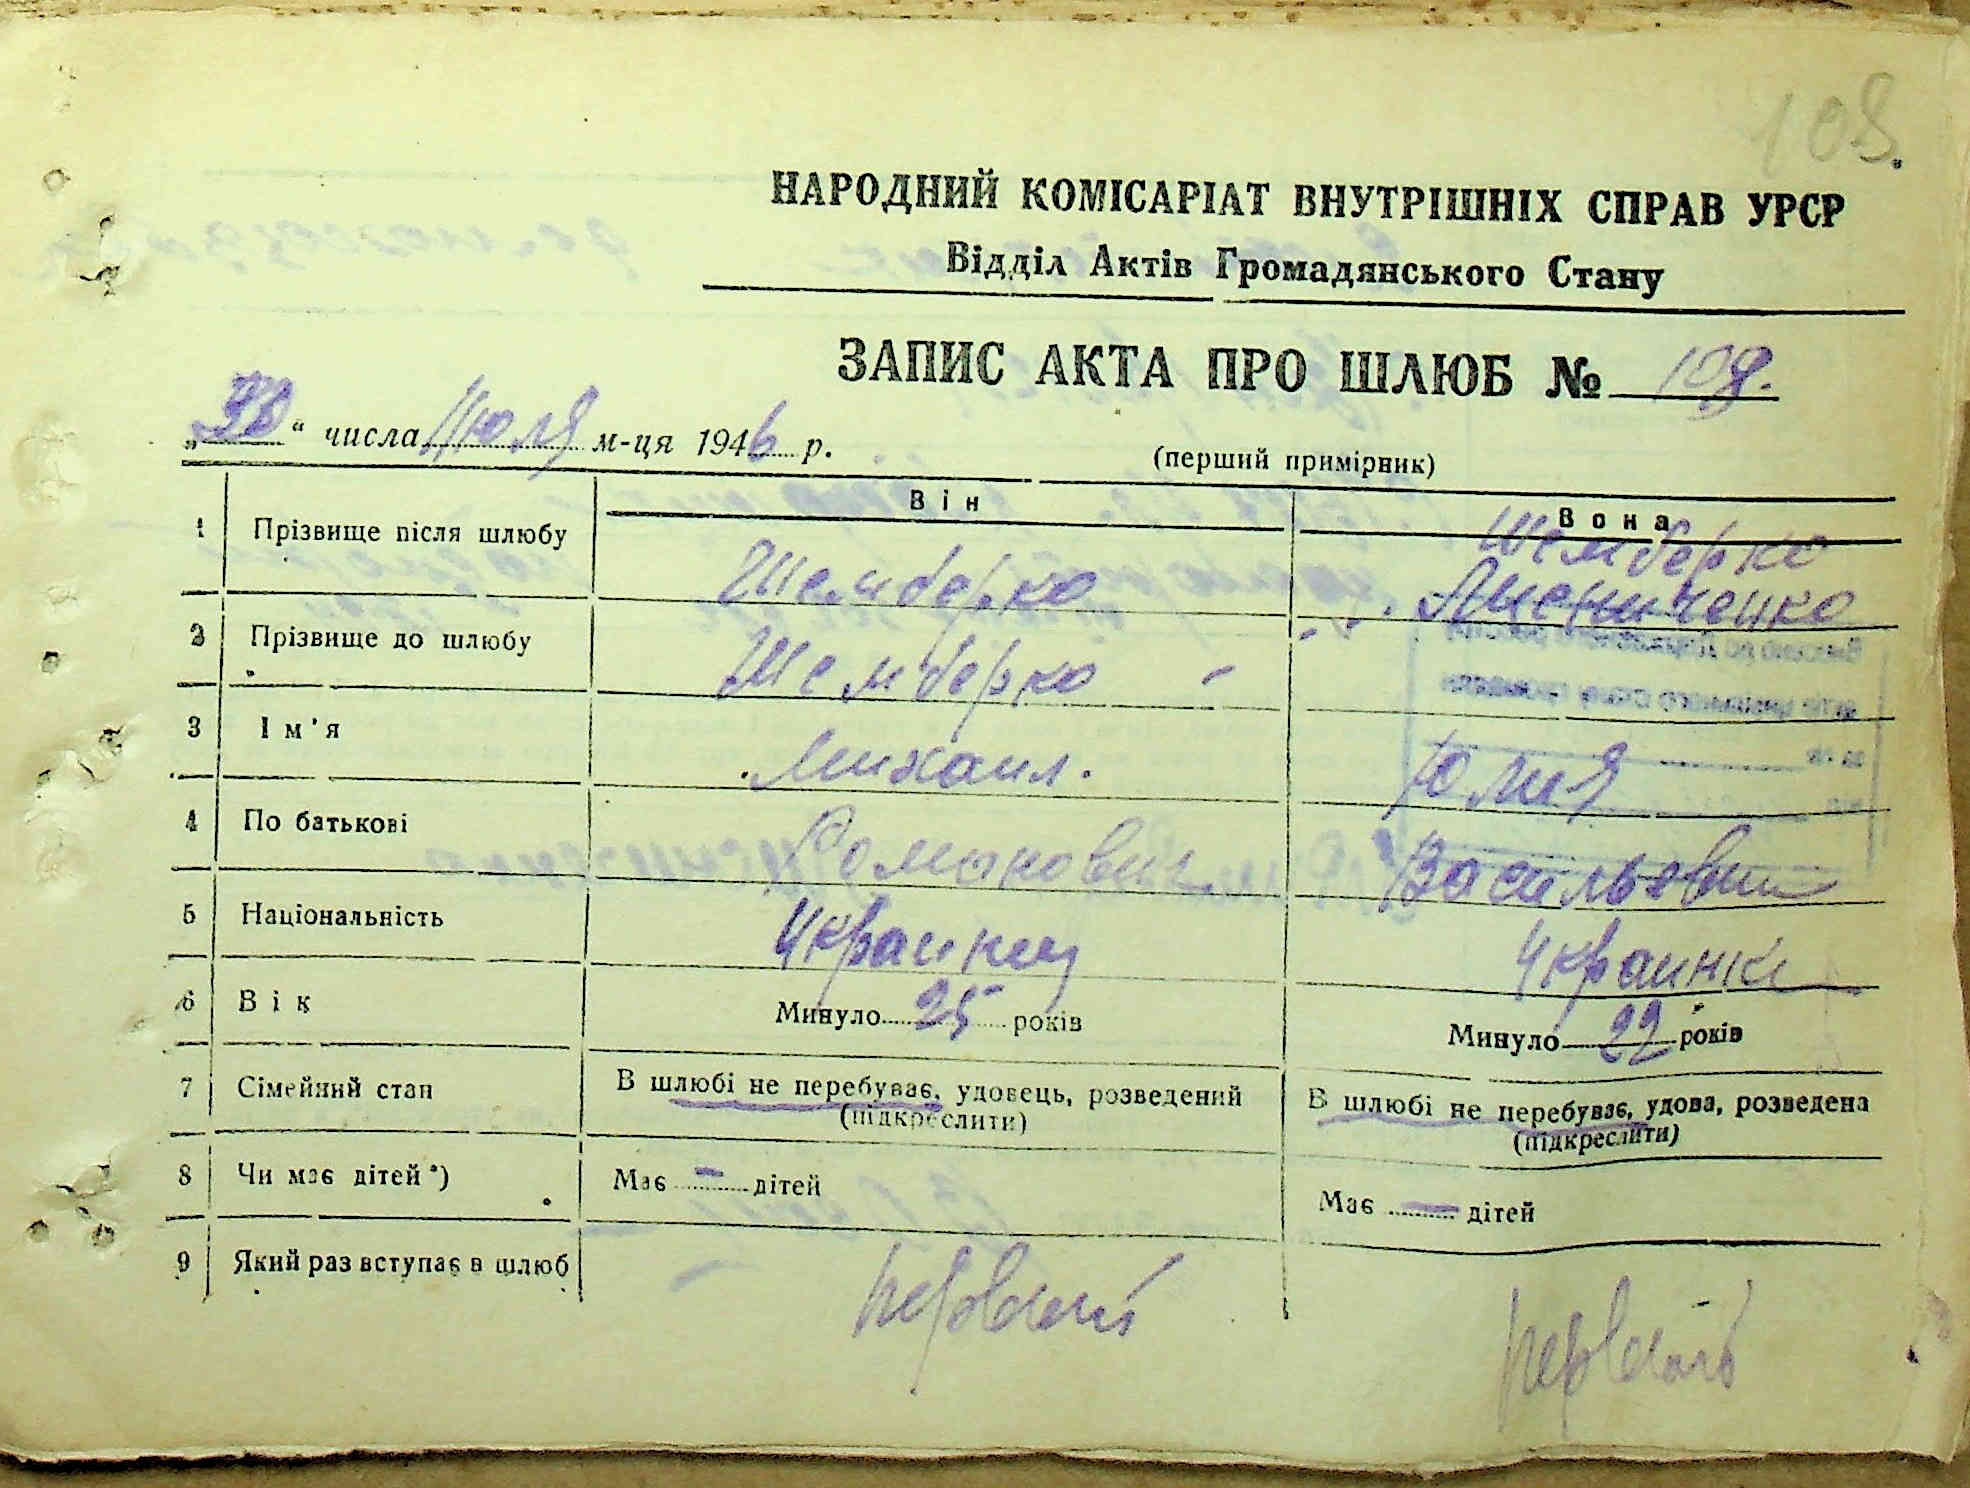 108.
НАРОДНИЙ КОМІСАРІАТ ВНУТРІШНІХ СПРАВ УРСР
Відділ Актів Громадянського Стану
ЗАПИС АКТА ПРО ШЛЮБ № 108.
„30“ числа Июля м-ця 1946 р.
(перший примірник)
Він Вона
1 Прізвище після шлюбу Шемберко Шемберко
2 Прізвище до шлюбу Шемберко - Пшениченко
3 Ім'я Михаил. Юлия
4 По батькові Романович Васильевна
5 Національність Украинец Украинка
6 Вік Минуло 25 років Минуло 22 років
7 Сімейний стан В шлюбі не перебуває, удовець, розведений В шлюбі не перебуває, удова, розведена
(підкреслити) (підкреслити)
8 Чи має дітей*) Має - дітей Має — дітей
9 Який раз вступає в шлюб первый первый